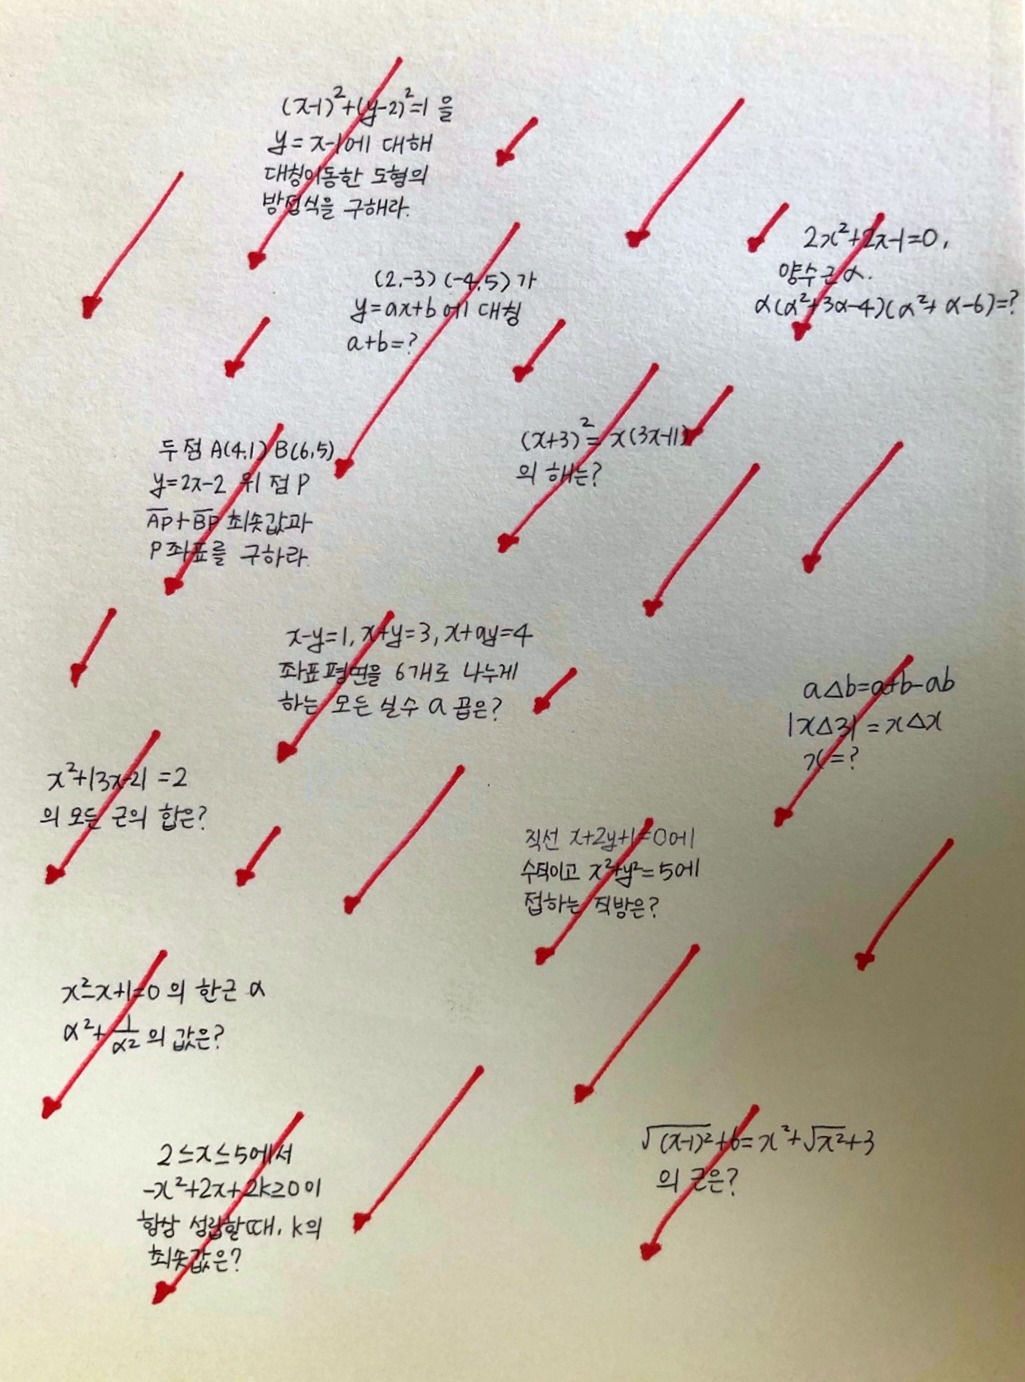 (x-1)²+(y-2)²=1 을
y=x-1에 대해
대칭이동한 도형의
방정식을 구해라.
2x²+2x-1=0,
양수근 α.
α(α²+3α-4)(α²+α-6)=?
(2,-3) (-4,5)가
y=ax+b에 대칭
a+b=?
(x+3)²=x(3x-11)
의 해는?
두 점 A(4,1) B(6,5)
y=2x-2 위 점 P
A̅P̅+B̅P̅ 최솟값과
P좌표를 구하라.
x-y=1, x+y=3, x+ay=4
좌표평면을 6개로 나누게
하는 모든 실수 a 곱은?
a△b=a+b-ab
|x△3|=x△x
x=?
x²+|3x-2|=2
의 모든 근의 합은?
직선 x+2y+1=0에
수직이고 x²+y²=5에
접하는 직방은?
x²-x+1=0의 한근 α
α²+1/α²의 값은?
2≤x≤5에서
-x²+2x+2k≥0이
항상 성립할때, k의
최솟값은?
√(x-1)²+6=x²+√x²+3
의 근은?